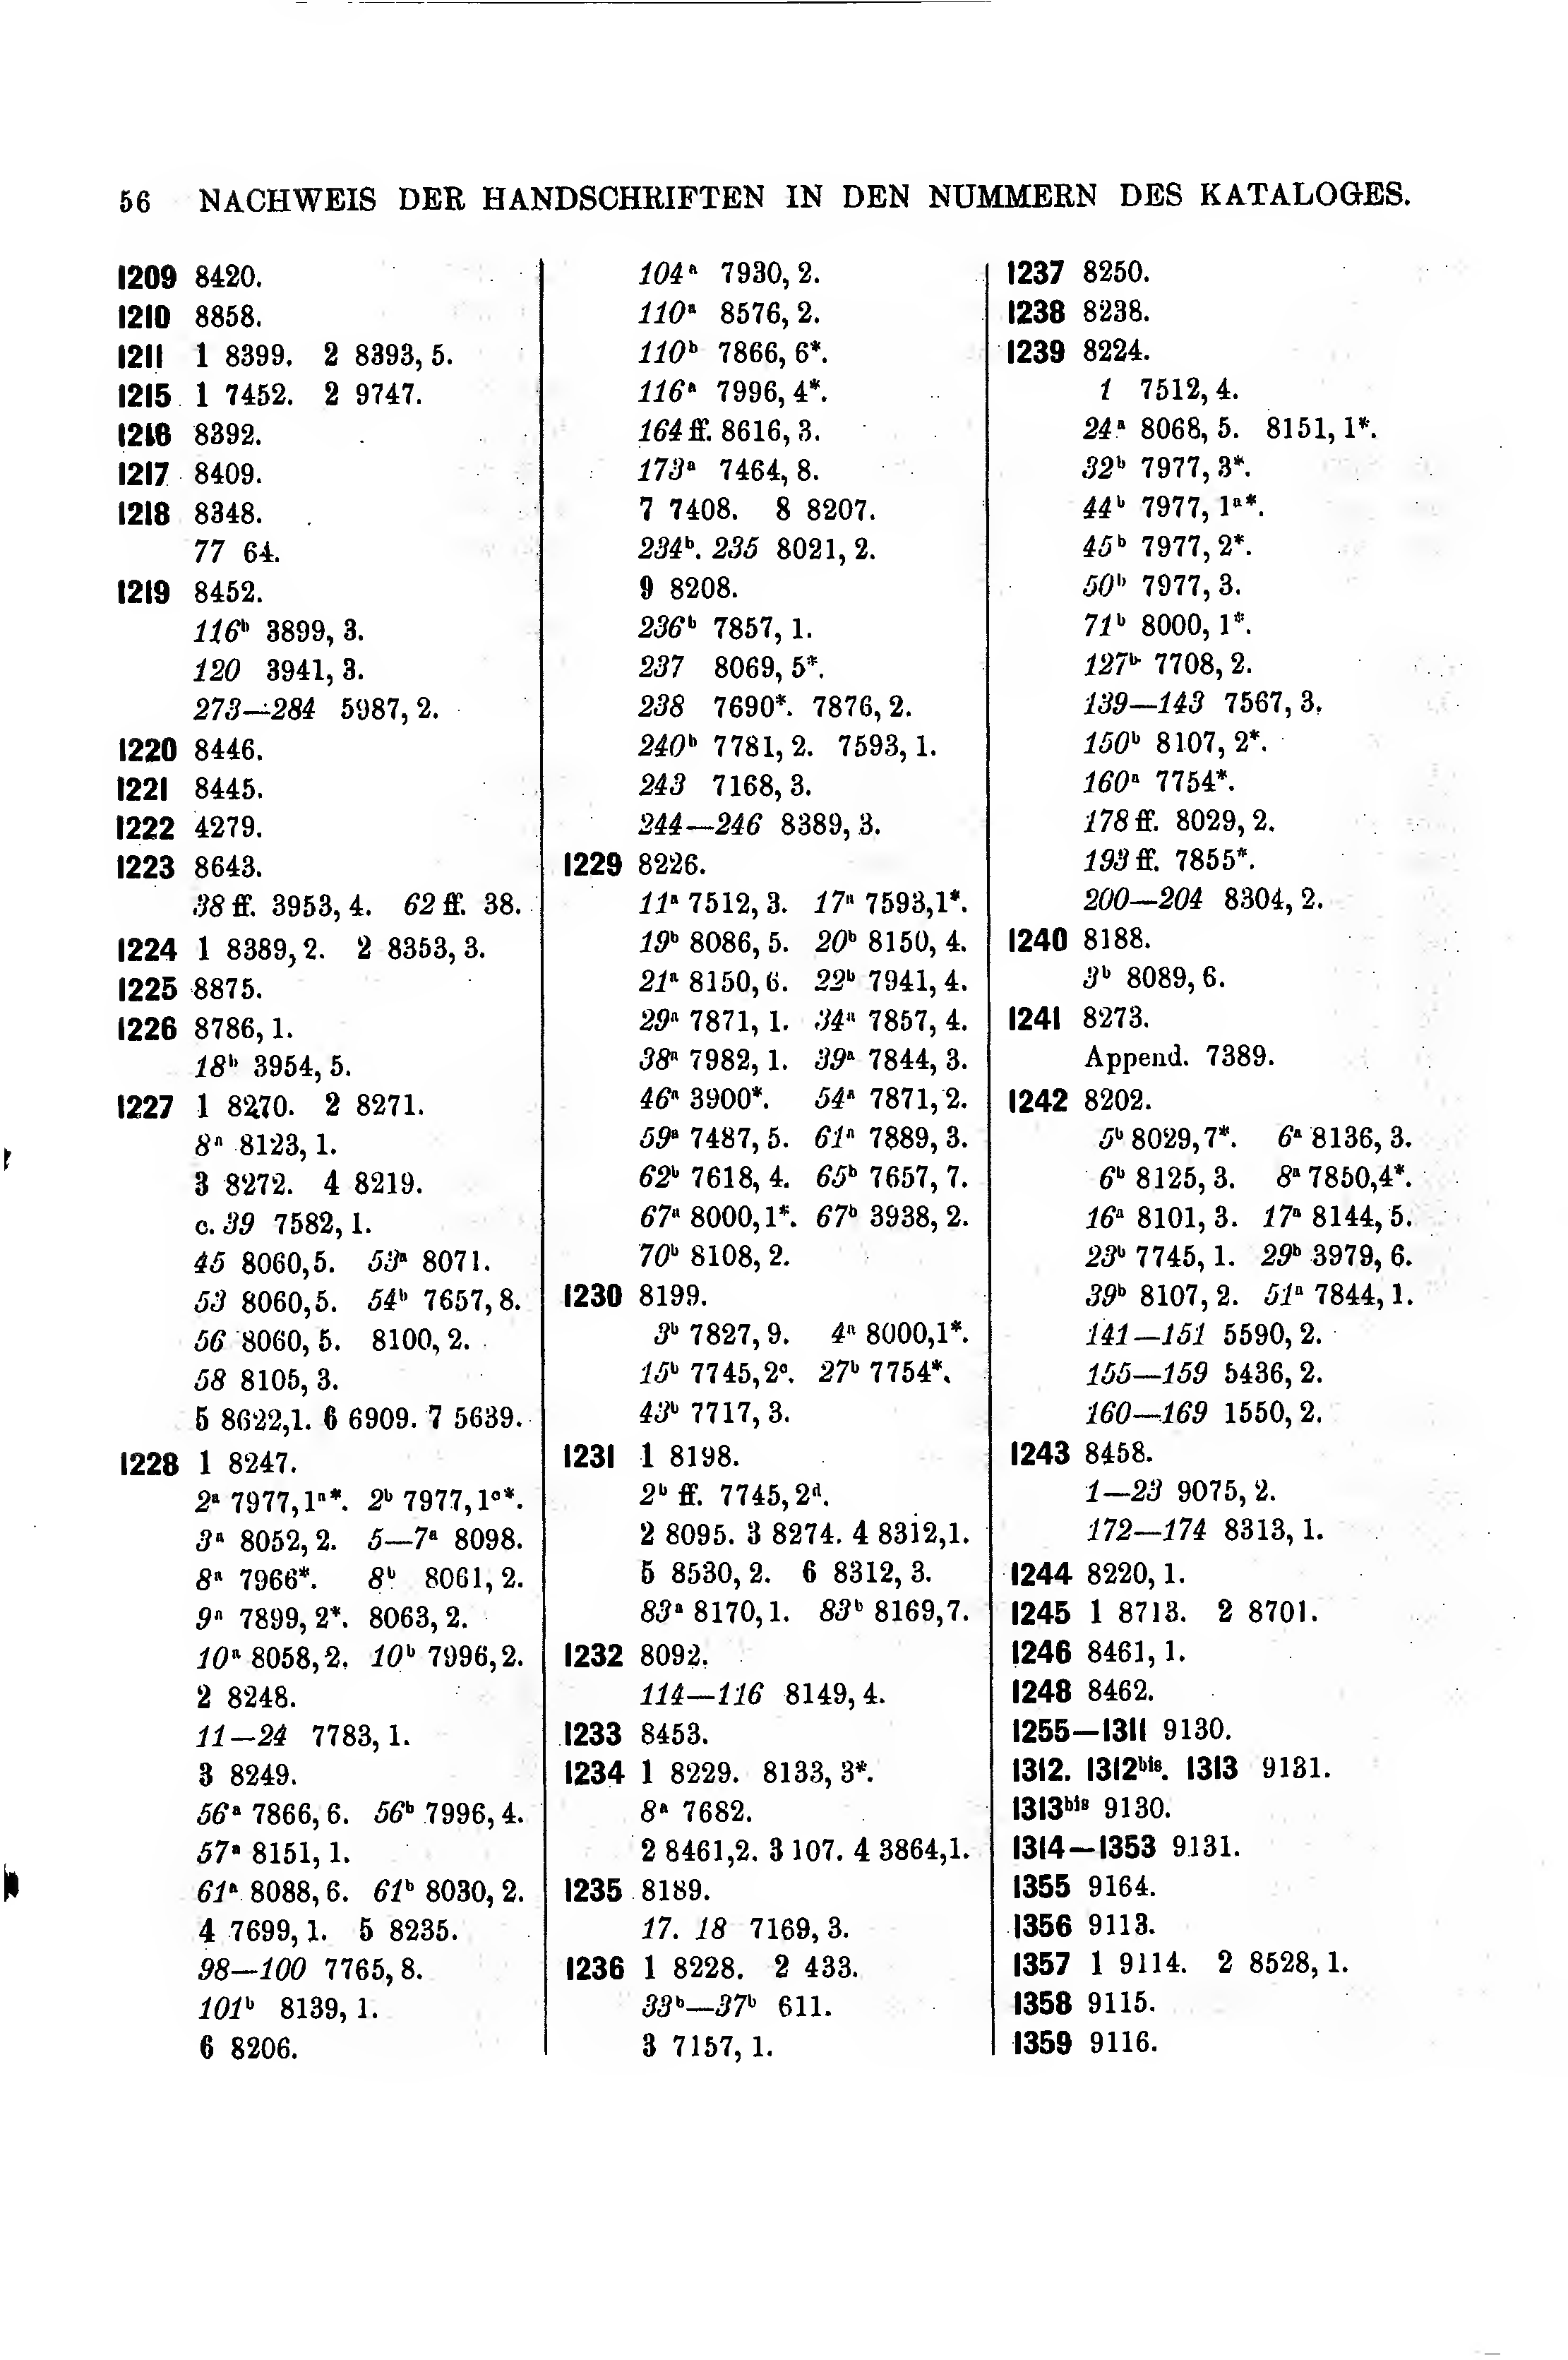 56 NACHWEIS DER HANDSCHRIFTEN IN DEN NUMMERN DES KATALOGES.
1209 8420.
1210 8858.
1211 1 8399. 2 8393, 5.
1215 1 7452. 2 9747.
1216 8392.
1217 8409.
1218 8348.
77 64.
1219 8452.
116ᵇ 3899, 3.
120 3941, 3.
273—284 5987, 2.
1220 8446.
1221 8445.
1222 4279.
1223 8643.
38 ff. 3953, 4. 62 ff. 38.
1224 1 8389, 2. 2 8353, 3.
1225 8875.
1226 8786, 1.
18ᵇ 3954, 5.
1227 1 8270. 2 8271.
8ᵃ 8123, 1.
3 8272. 4 8219.
c. 39 7582, 1.
45 8060,5. 53ᵃ 8071.
53 8060,5. 54ᵇ 7657, 8.
56 8060, 5. 8100, 2.
58 8105, 3.
5 8622,1. 6 6909. 7 5639.
1228 1 8247.
2ᵃ 7977,1ᵃ*. 2ᵇ 7977,1ᶜ*.
3ᵃ 8052, 2. 5—7ᵃ 8098.
8ᵃ 7966*. 8ᵇ 8061, 2.
9ᵃ 7899, 2*. 8063, 2.
10ᵃ 8058, 2. 10ᵇ 7996,2.
2 8248.
11—24 7783, 1.
3 8249.
56ᵃ 7866, 6. 56ᵇ 7996, 4.
57ᵃ 8151, 1.
61ᵃ 8088, 6. 61ᵇ 8030, 2.
4 7699, 1. 5 8235.
98—100 7765, 8.
101ᵇ 8139, 1.
6 8206.
104ᵃ 7930, 2.
110ᵃ 8576, 2.
110ᵇ 7866, 6*.
116ᵃ 7996, 4*.
164 ff. 8616, 3.
173ᵃ 7464, 8.
7 7408. 8 8207.
234ᵇ. 235 8021, 2.
9 8208.
236ᵇ 7857, 1.
237 8069, 5*.
238 7690*. 7876, 2.
240ᵇ 7781, 2. 7593, 1.
243 7168, 3.
244—246 8389, 3.
1229 8226.
11ᵃ 7512, 3. 17ᵃ 7593,1*.
19ᵇ 8086, 5. 20ᵇ 8150, 4.
21ᵃ 8150, 6. 22ᵇ 7941, 4.
29ᵃ 7871, 1. 34ᵃ 7857, 4.
38ᵃ 7982, 1. 39ᵃ 7844, 3.
46ᵃ 3900*. 54ᵃ 7871, 2.
59ᵃ 7487, 5. 61ᵃ 7889, 3.
62ᵇ 7618, 4. 65ᵇ 7657, 7.
67ᵃ 8000,1*. 67ᵇ 3938, 2.
70ᵇ 8108, 2.
1230 8199.
3ᵇ 7827, 9. 4ᵃ 8000,1*.
15ᵇ 7745,2ᶜ. 27ᵇ 7754*.
43ᵇ 7717, 3.
1231 1 8198.
2ᵇ ff. 7745, 2ᵈ.
2 8095. 3 8274. 4 8312,1.
5 8530, 2. 6 8312, 3.
83ᵃ 8170, 1. 83ᵇ 8169,7.
1232 8092.
114—116 8149, 4.
1233 8453.
1234 1 8229. 8133, 3*.
8ᵃ 7682.
2 8461,2. 3 107. 4 3864,1.
1235 8189.
17. 18 7169, 3.
1236 1 8228. 2 433.
33ᵇ—37ᵇ 611.
3 7157, 1.
1237 8250.
1238 8238.
1239 8224.
1 7512, 4.
24ᵃ 8068, 5. 8151, 1*.
32ᵇ 7977, 3*.
44ᵇ 7977, 1ᵃ*.
45ᵇ 7977, 2*.
50ᵇ 7977, 3.
71ᵇ 8000, 1*.
127ᵇ 7708, 2.
139—143 7567, 3.
150ᵇ 8107, 2*.
160ᵃ 7754*.
178 ff. 8029, 2.
193 ff. 7855*.
200—204 8304, 2.
1240 8188.
3ᵇ 8089, 6.
1241 8273.
Append. 7389.
1242 8202.
5ᵇ 8029,7*. 6ᵃ 8136, 3.
6ᵇ 8125, 3. 8ᵃ 7850,4*.
16ᵃ 8101, 3. 17ᵃ 8144, 5.
23ᵇ 7745, 1. 29ᵇ 3979, 6.
39ᵇ 8107, 2. 51ᵃ 7844, 1.
141—151 5590, 2.
155—159 5436, 2.
160—169 1550, 2.
1243 8458.
1—23 9075, 2.
172—174 8313, 1.
1244 8220, 1.
1245 1 8713. 2 8701.
1246 8461, 1.
1248 8462.
1255—1311 9130.
1312. 1312ᵇⁱˢ. 1313 9131.
1313ᵇⁱˢ 9130.
1314—1353 9131.
1355 9164.
1356 9113.
1357 1 9114. 2 8528, 1.
1358 9115.
1359 9116.